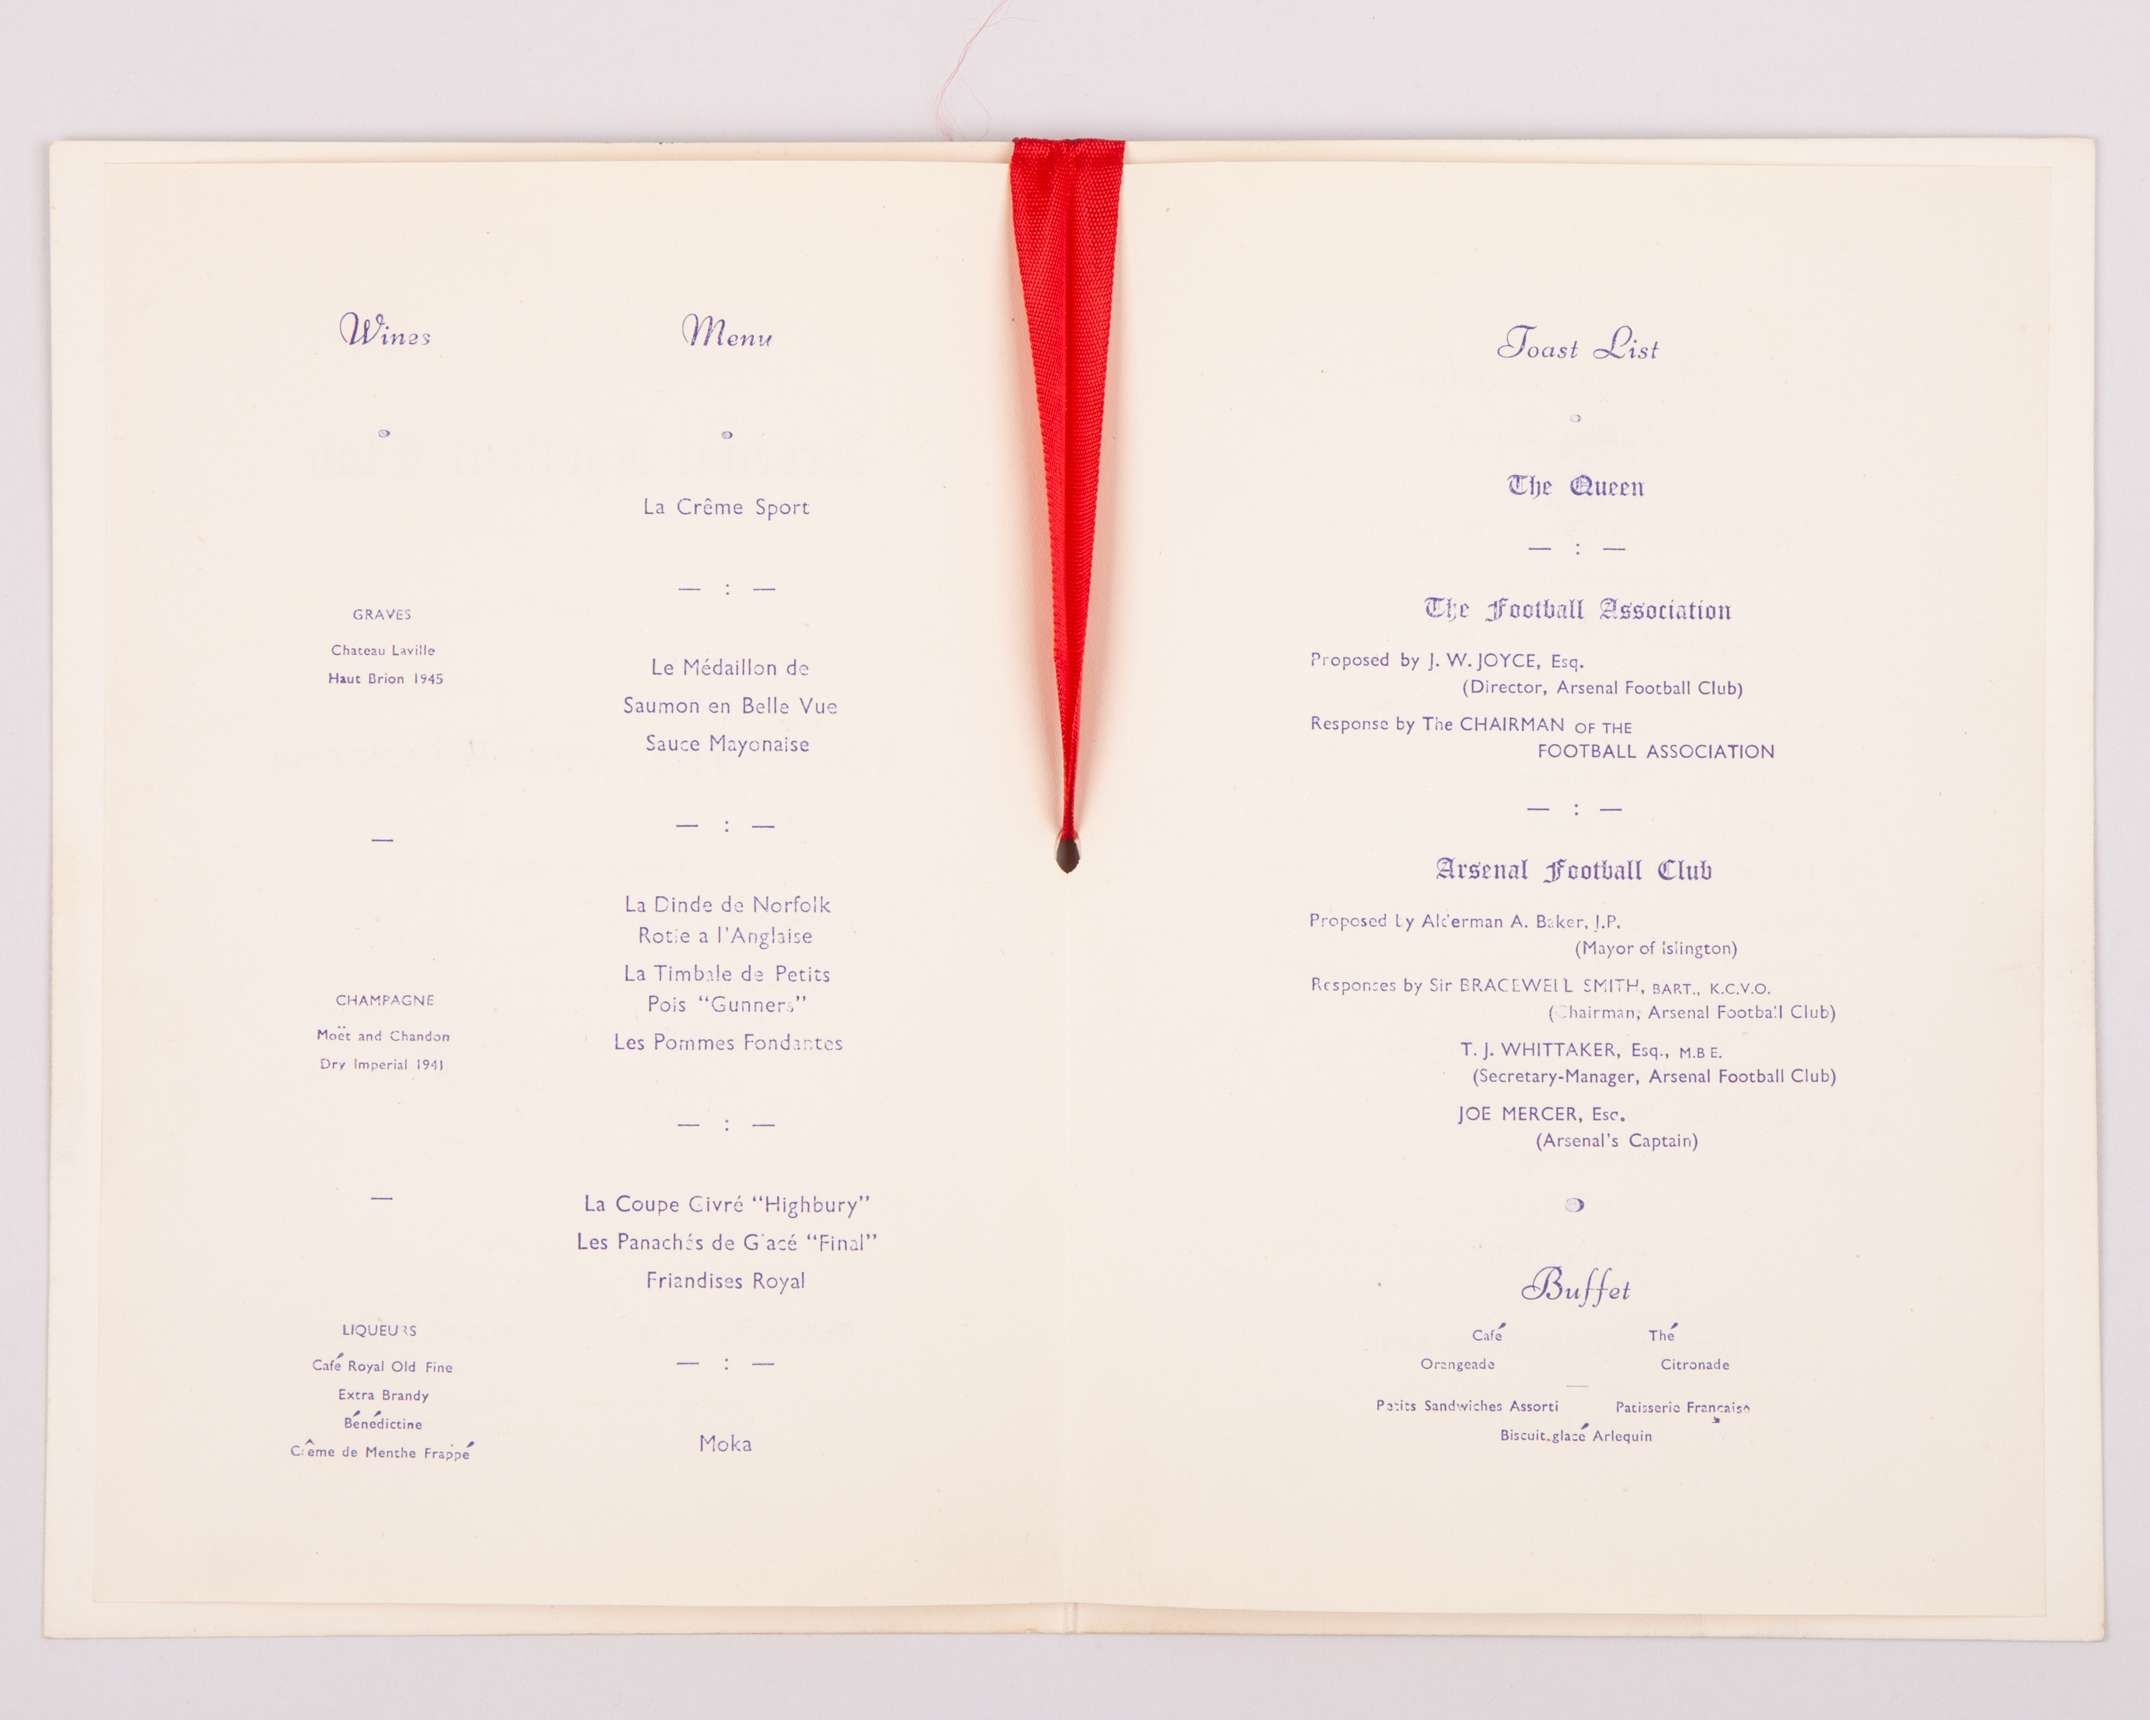 Wines
GRAVES
Chateau Laville
Haut Brion 1945
—
CHAMPAGNE
Moët and Chandon
Dry Imperial 1941
—
LIQUEURS
Café Royal Old Fine
Extra Brandy
Bénédictine
Crême de Menthe Frappé
Menu
La Crême Sport
— : —
Le Médaillon de
Saumon en Belle Vue
Sauce Mayonaise
— : —
La Dinde de Norfolk
Rotie a l'Anglaise
La Timbale de Petits
Pois “Gunners”
Les Pommes Fondantes
— : —
La Coupe Givré “Highbury”
Les Panachés de Glacé “Final”
Friandises Royal
— : —
Moka
Toast List
The Queen
— : —
The Football Association
Proposed by J. W. JOYCE, Esq.
(Director, Arsenal Football Club)
Response by The CHAIRMAN OF THE
FOOTBALL ASSOCIATION
— : —
Arsenal Football Club
Proposed by Alderman A. Baker, J.P.
(Mayor of Islington)
Responses by Sir BRACEWELL SMITH, BART., K.C.V.O.
(Chairman, Arsenal Football Club)
T. J. WHITTAKER, Esq., M.B E.
(Secretary-Manager, Arsenal Football Club)
JOE MERCER, Esq.
(Arsenal's Captain)
Buffet
Café Thé
Orangeade Citronade
—
Petits Sandwiches Assorti Patisserie Française
Biscuit glacé Arlequin